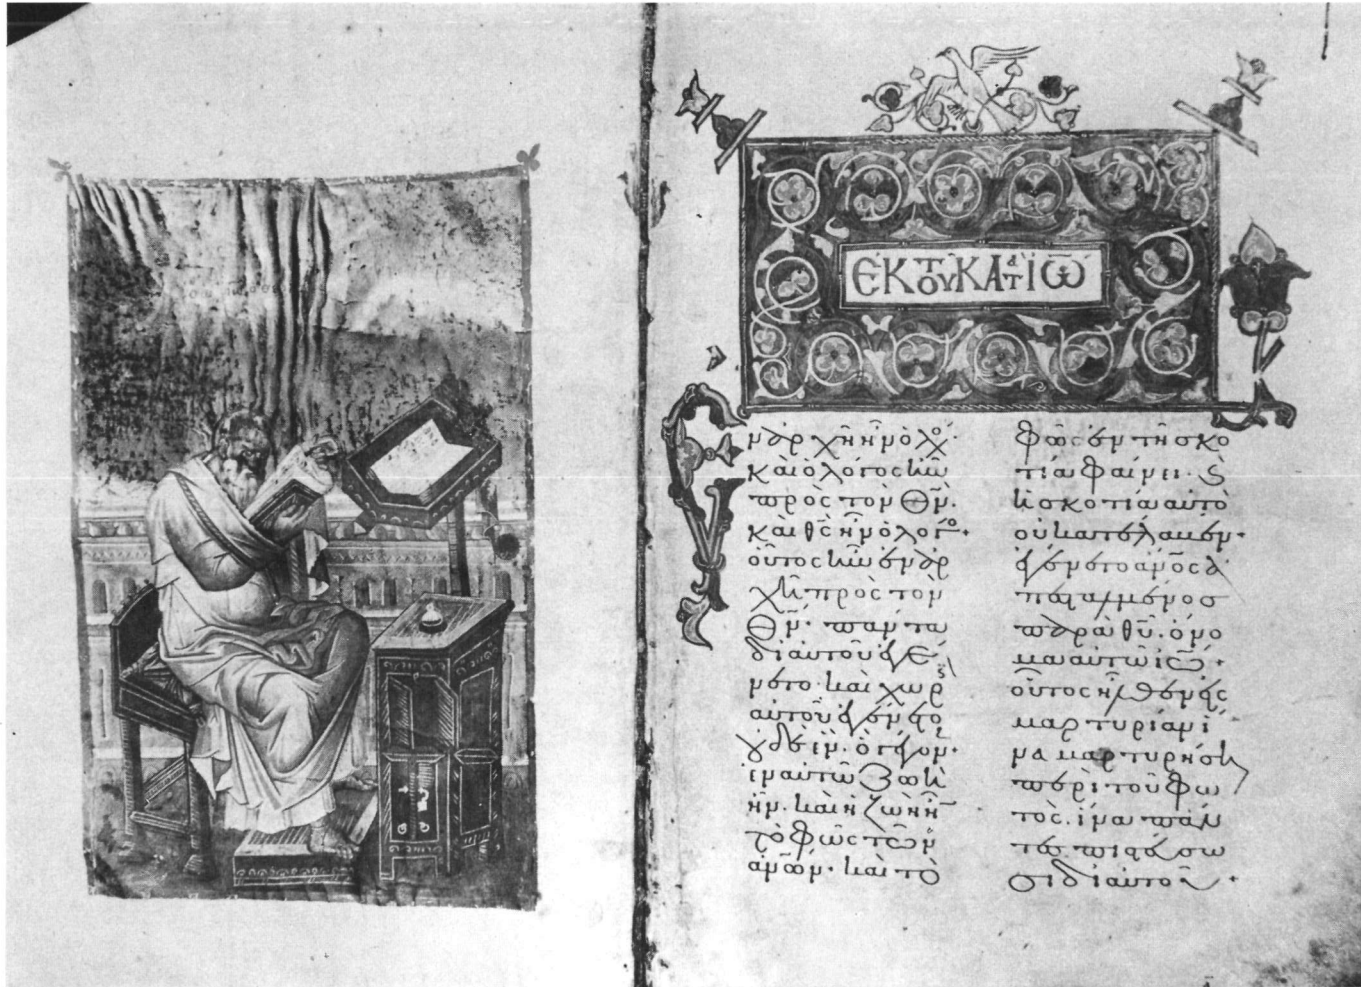 ΕΚ ΤΟΥ ΚΑΤ ΙΩ
Ἐν ἀρχῆ ἦν ὁ λό
καὶ ὁ λόγος ἦν
πρὸς τὸν Θν.
καὶ θς ἦν ὁ λόγο.
οὗτος ἦν ἐν ἀρ
χῆ πρὸς τὸν
Θν. πάντα
δι αυτοῦ ἐγέ
νετο καὶ χωρ
αυτοῦ ἐγένετο
οὐδὲ ἕν. ὃ γέγον.
ἐν αυτῶ ζωὴ
ἦν. καὶ ἡ ζωὴ ἦ
τὸ φῶς τῶν
ανῶν. καὶ τὸ
φῶς ἐν τῆ σκο
τία φαίνει. 
ἡ σκοτία αυτὸ
οὐ κατέλαβεν.
ἐγένετο ανος ἀ
πεσταλμένος
παρὰ θυ. ὄνο
μα αυτῶ ιω.
οὗτος ἦλθεν εἰς
μαρτυρίαν ἵ
να μαρτυρήση
περὶ τοῦ φω
τός. ἵνα πάν
τες πιστεύσω
σι δι αυτοῦ.